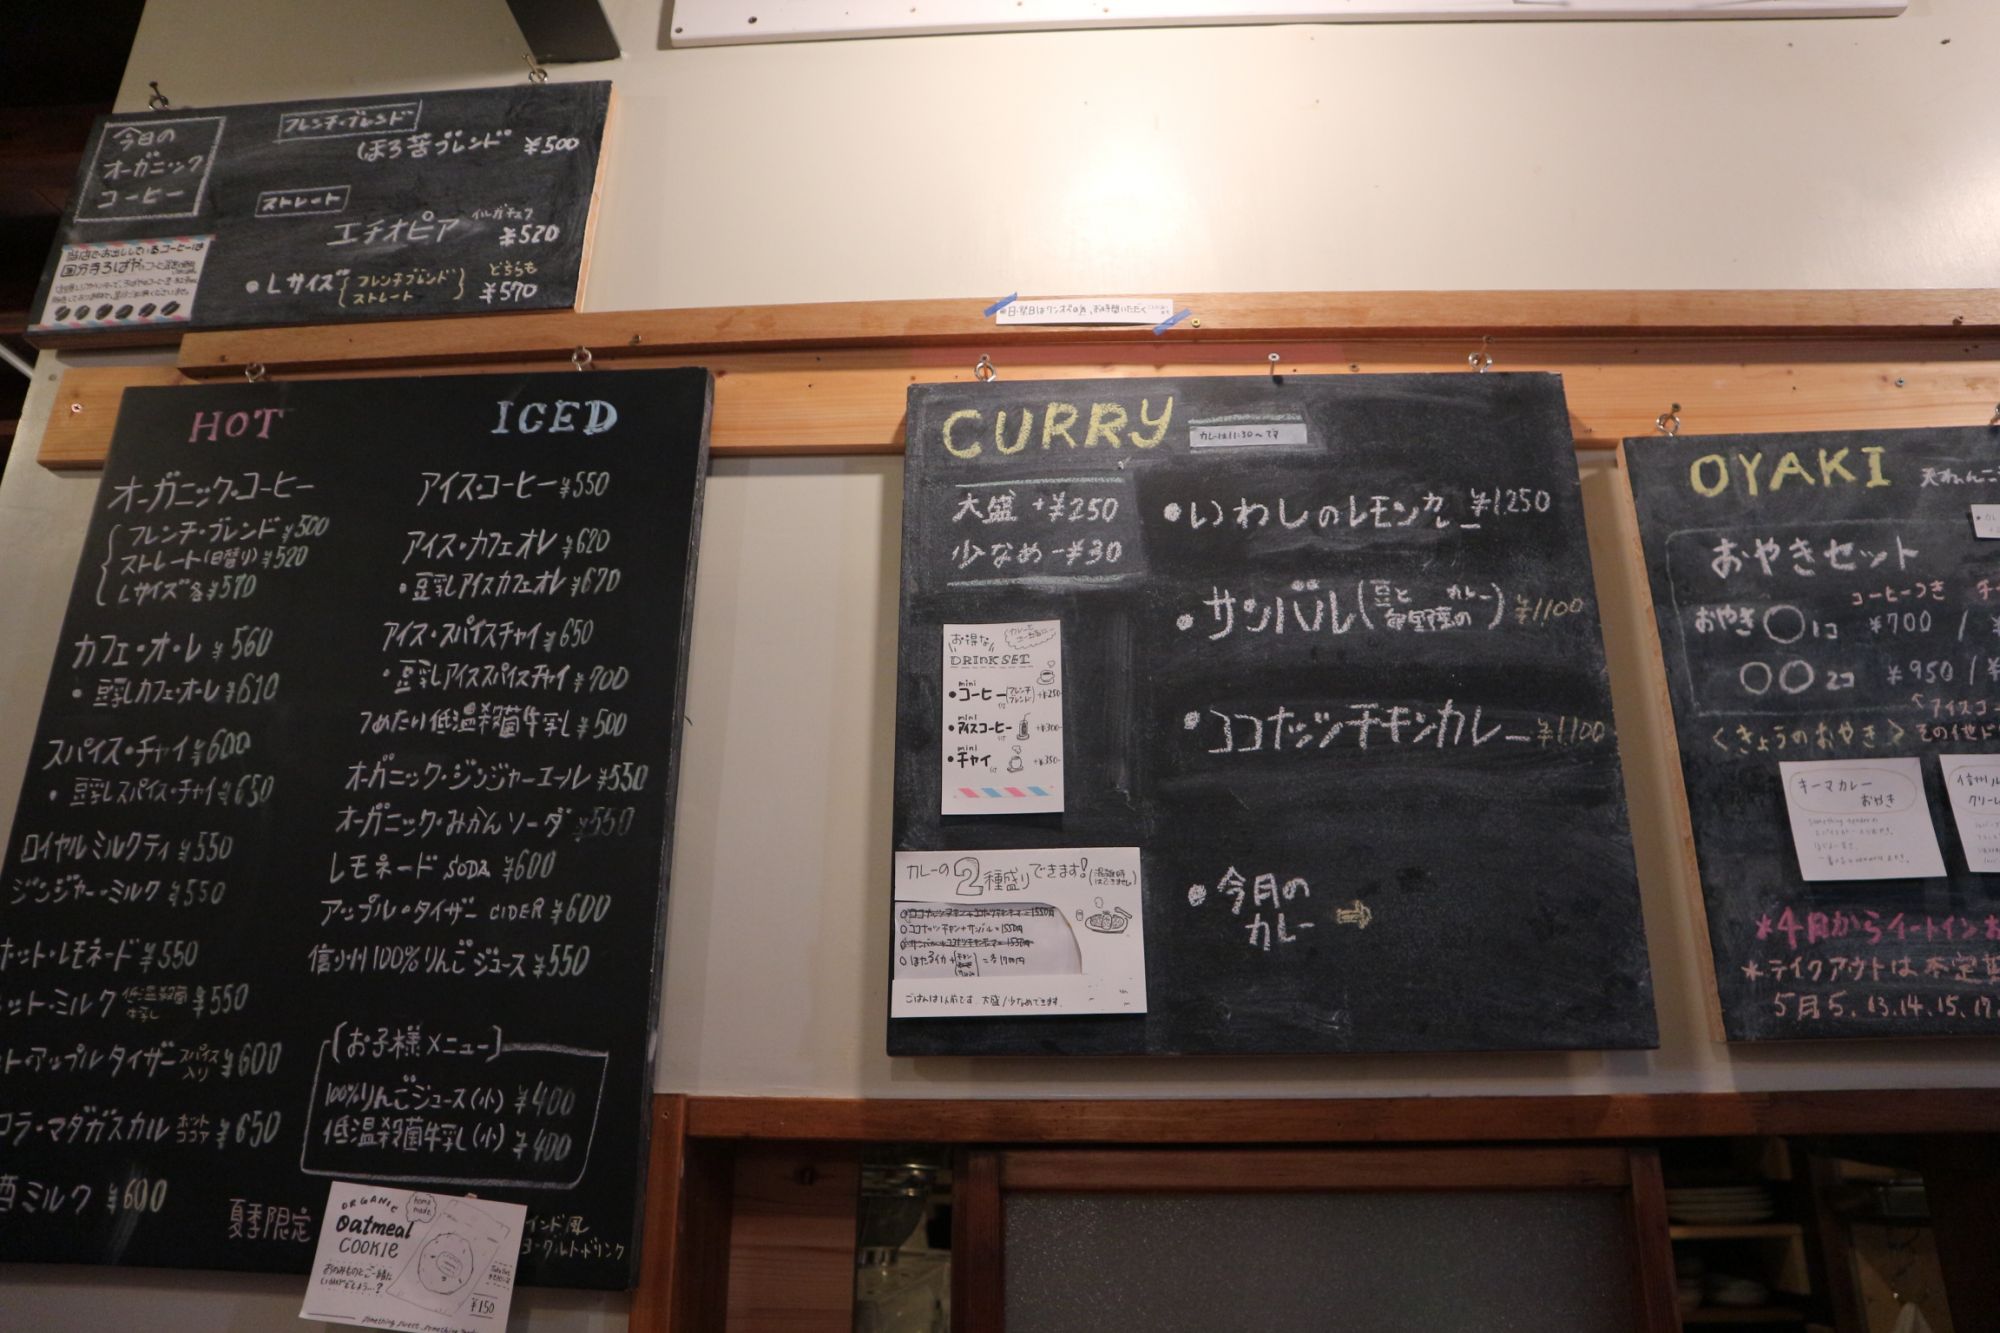 今日の
オーガニック
コーヒー
フレンチ・ブレンド
ほろ苦ブレンド ¥500
ストレート
エチオピア イルガチェフ
¥520
・Lサイズ{フレンチブレンド ストレート} どちらも ¥570
当店でお出ししているコーヒーは
国分寺ろばや
HOT
オーガニック・コーヒー
フレンチ・ブレンド ¥500
ストレート(日替り) ¥520
Lサイズ各 ¥570
カフェ・オ・レ ¥560
・豆乳カフェ・オ・レ ¥610
スパイス・チャイ ¥600
・豆乳スパイス・チャイ ¥650
ロイヤルミルクティ ¥550
ジンジャー・ミルク ¥550
ホット・レモネード ¥550
ット・ミルク 低温殺菌牛乳 ¥550
ト・アップルタイザー スパイス入り ¥600
コラ・マダガスカル ホットココア ¥650
酒ミルク ¥600
ICED
アイス・コーヒー ¥550
アイス・カフェオレ ¥620
・豆乳アイスカフェオレ ¥670
アイス・スパイスチャイ ¥650
・豆乳アイススパイスチャイ ¥700
つめたい低温殺菌牛乳 ¥500
オーガニック・ジンジャーエール ¥550
オーガニック・みかんソーダ ¥550
レモネード SODA ¥600
アップル・タイザー CIDER ¥600
信州100%りんごジュース ¥550
[お子様メニュー]
100%りんごジュース(小) ¥400
低温殺菌牛乳(小) ¥400
夏季限定
インド風
ヨーグルト・ドリンク
ORGANIC
home made
oatmeal
COOKIE
¥150
日・祝日はワンオペの為、お時間いただく
CURRY
カレーは11:30〜です
大盛 +¥250
少なめ -¥30
・いわしのレモンカレー ¥1,250
・サンバル(豆と野菜のカレー) ¥1,100
・ココナッツチキンカレー ¥1,100
・今月の
カレー ⇒
お得な
DRINK SET
mini
・コーヒー(フレンチブレンド) +¥250
mini
・アイスコーヒー +¥300
mini
・チャイ +¥350
カレーの2種盛りできます!(混雑時はできません)
○ココナッツチキン+サンバル=1550円
ごはんは1人前です 大盛/少なめできます.
OYAKI
おやきセット
コーヒーつき
おやき ○1コ ¥700 / ¥
○○2コ ¥950 / ¥
アイスコー
<きょうのおやき> その他ド
キーマカレー
おやき
信州
クリーム
*4日からイートイン
*テイクアウトは不定
5月5、13、14、15、17、